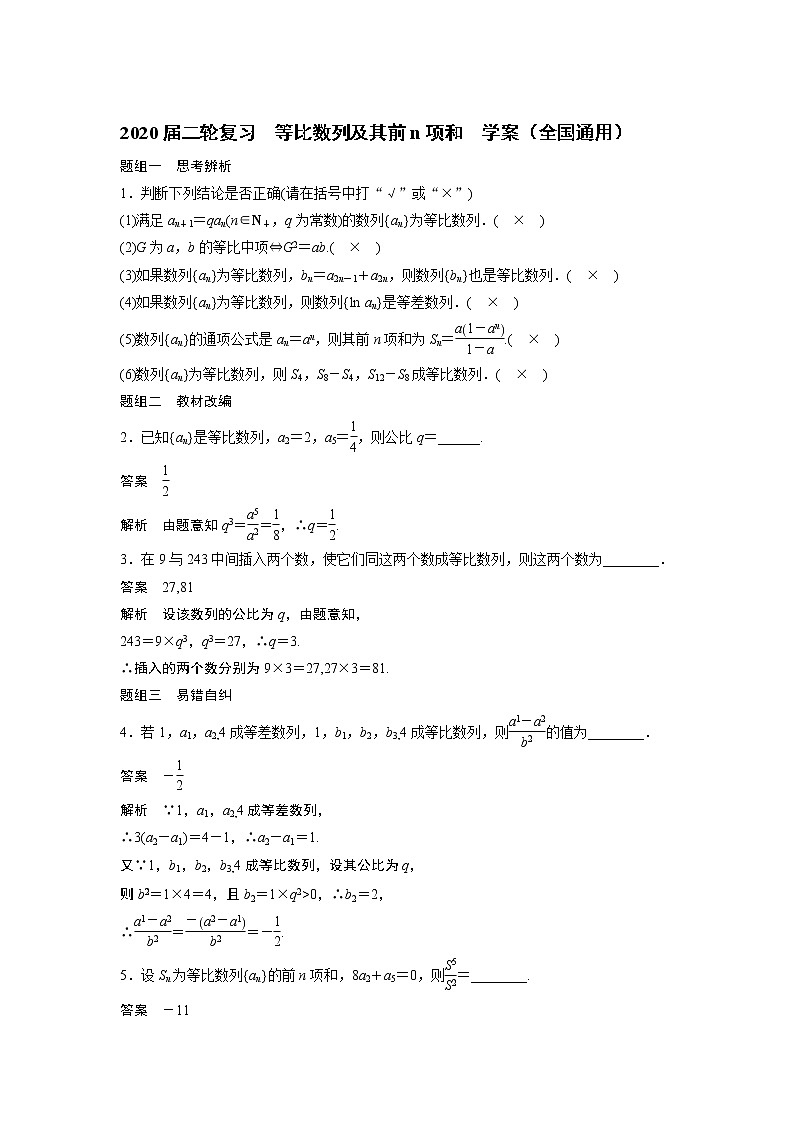 2020届二轮复习　等比数列及其前n项和　学案（全国通用）
题组一　思考辨析
1．判断下列结论是否正确(请在括号中打“√”或“×”)
(1)满足aₙ₊₁＝qaₙ(n∈N₊，q为常数)的数列{aₙ}为等比数列．(　×　)
(2)G为a，b的等比中项⇔G²＝ab.(　×　)
(3)如果数列{aₙ}为等比数列，bₙ＝a₂ₙ₋₁＋a₂ₙ，则数列{bₙ}也是等比数列．(　×　)
(4)如果数列{aₙ}为等比数列，则数列{ln aₙ}是等差数列．(　×　)
(5)数列{aₙ}的通项公式是aₙ＝aⁿ，则其前n项和为Sₙ＝a(1－aⁿ)/(1－a).(　×　)
(6)数列{aₙ}为等比数列，则S₄，S₈－S₄，S₁₂－S₈成等比数列．(　×　)
题组二　教材改编
2．已知{aₙ}是等比数列，a₂＝2，a₅＝1/4，则公比q＝______.
答案　1/2
解析　由题意知q³＝a⁵/a²＝1/8，∴q＝1/2.
3．在9与243中间插入两个数，使它们同这两个数成等比数列，则这两个数为________．
答案　27,81
解析　设该数列的公比为q，由题意知，
243＝9×q³，q³＝27，∴q＝3.
∴插入的两个数分别为9×3＝27,27×3＝81.
题组三　易错自纠
4．若1，a₁，a₂,4成等差数列，1，b₁，b₂，b₃,4成等比数列，则(a¹－a²)/b²的值为________．
答案　－1/2
解析　∵1，a₁，a₂,4成等差数列，
∴3(a₂－a₁)＝4－1，∴a₂－a₁＝1.
又∵1，b₁，b₂，b₃,4成等比数列，设其公比为q，
则b²＝1×4＝4，且b₂＝1×q²>0，∴b₂＝2，
∴(a¹－a²)/b²＝－(a²－a¹)/b²＝－1/2.
5．设Sₙ为等比数列{aₙ}的前n项和，8a₂＋a₅＝0，则S⁵/S²＝________.
答案　－11